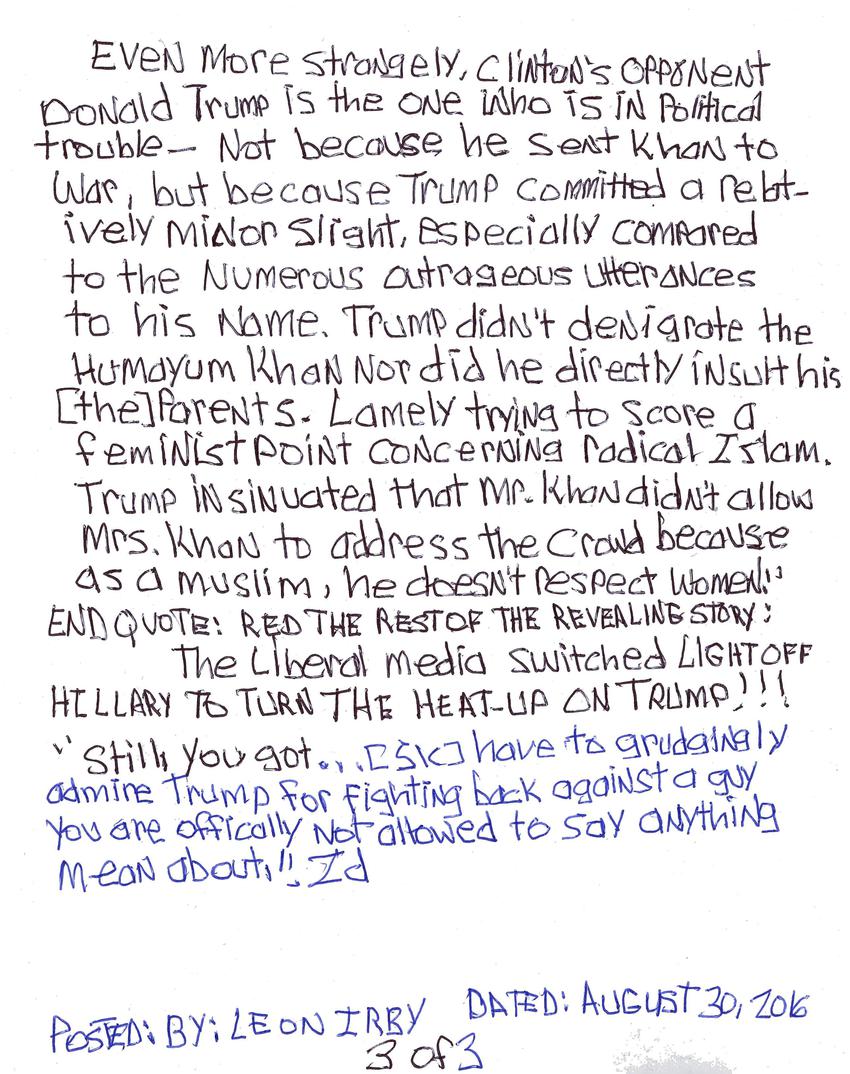 Even More strangely, Clinton's OPPONENT
Donald Trump is the one who is in Political
trouble— Not because he sent Khan to
War, but because Trump committed a relat-
ively Minor Slight, Especially compared
to the Numerous outrageous utterances
to his Name. Trump didn't denigrate the
Humayum Khan Nor did he directly insult his
[the] Parents. Lamely trying to score a
feminist Point concerning radical Islam.
Trump insinuated that Mr. Khan didn't allow
Mrs. Khan to address the Crowd because
as a muslim, he doesn't respect women."
END QUOTE: RED THE REST OF THE REVEALING STORY:
The Liberal media switched LIGHT OFF
HILLARY TO TURN THE HEAT-UP ON TRUMP!!!
"Still, you got...[SIC] have to grudgingly
admire Trump for fighting back against a guy
you are offically Not allowed to say anything
mean about." Id
POSTED: BY: LEON IRBY DATED: AUGUST 30, 2016
3 of 3